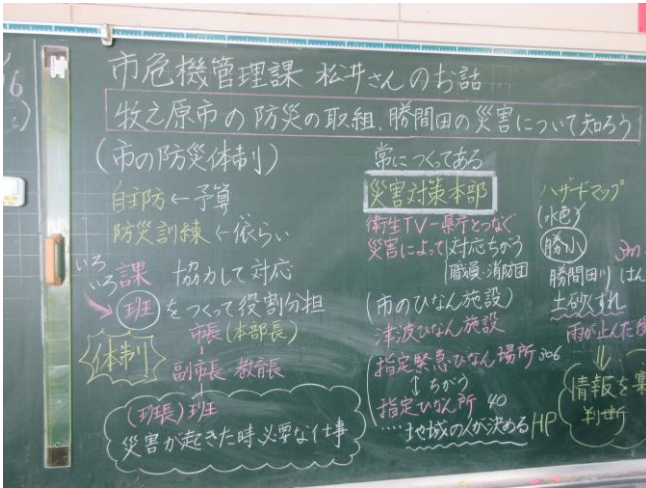 市危機管理課 松井さんのお話
牧之原市の防災の取組、勝間田の災害について知ろう
(市の防災体制)
自主防←予算
防災訓練←依らい
いろいろ課 協力して対応
班をつくって役割分担
体制
市長(本部長)
副市長 教育長
(班長)班
災害が起きた時必要な仕事
常につくってある
災害対策本部
衛生TV―県庁とつなぐ
災害によって 対応ちがう
職員・消防団
(市のひなん施設)
津波ひなん施設
指定緊急ひなん場所 306
↑ちがう
指定ひなん所 40
‥‥地域の人が決める HP
ハザードマップ
(水色)
勝小
勝間田川 はん
土砂くずれ
雨が止んだ後
⇓
情報を集
判断